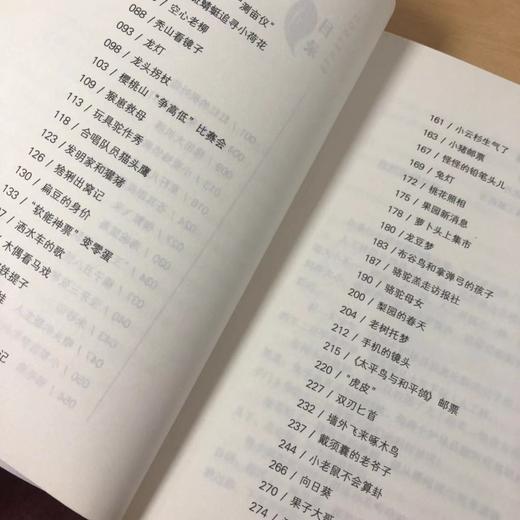 "测亩仪"
红蜻蜓追寻小荷花
空心老柳
088 / 秃山看镜子
093 / 龙灯
098 / 龙头拐杖
103 / 樱桃山"争高低"比赛会
109 / 猴崽救母
113 / 玩具驼作秀
118 / 合唱队员猫头鹰
123 / 发明家和獾猪
126 / 猞猁出窝记
130 / 扁豆的身价
133 / "软能神票"变零蛋
7 / 洒水车的歌
木偶看马戏
铁提子
娃
记
目
录
161 / 小云杉生气了
163 / 小猪邮票
167 / 怪怪的铅笔头儿
169 / 兔灯
172 / 桃花照相
175 / 果园新消息
178 / 萝卜头上集市
180 / 龙豆梦
183 / 布谷鸟和拿弹弓的孩子
187 / 骆驼羔走访报社
190 / 骆驼母女
200 / 梨园的春天
204 / 老树托梦
212 / 手机的镜头
215 / 《太平鸟与和平鸽》邮票
220 / "虎皮"
227 / 双刃匕首
232 / 墙外飞来啄木鸟
237 / 戴须囊的老爷子
244 / 小老鼠不会算卦
266 / 向日葵
270 / 果子大哥
274 /